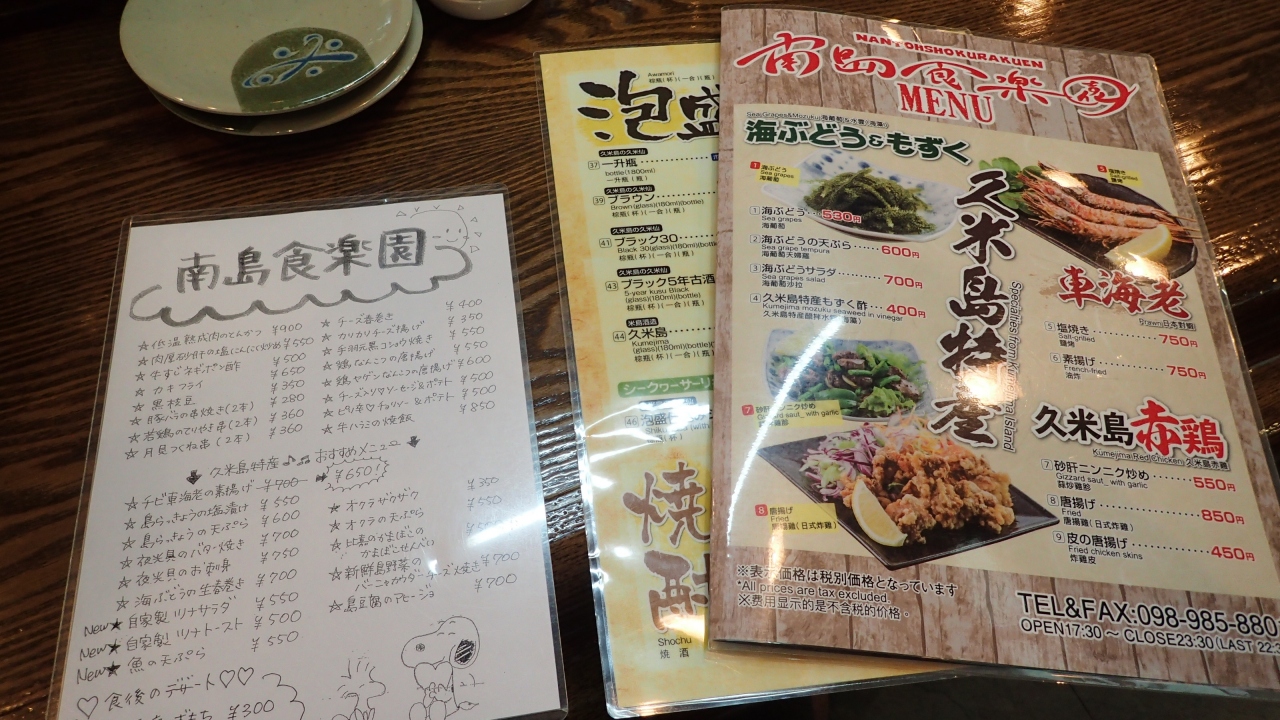 南島食楽園
★低温熟成肉のとんかつ ¥900
★肉厚砂肝の塩にんにく炒め ¥550
★牛すじネギポン酢 ¥500
★カキフライ ¥650
★黒枝豆 ¥350
★豚バラの串焼き(2本) ¥280
★若鶏のてりやき串(2本) ¥360
★月見つくね串(2本) ¥360
★チーズ春巻き ¥400
★カリカリチーズ揚げ ¥350
★手羽元黒コショウ焼き ¥550
★鶏なんこつの唐揚げ ¥550
★鶏ヤゲンなんこつの唐揚げ ¥600
★チーズインウインナーソーセージ&ポテト ¥500
★ピリ辛♡チョリソー&ポテト ¥500
★牛ハラミの焼飯 ¥850
久米島特産♪♫おすすめメニュー
★チビ車海老の素揚げ ¥700 ➡ ¥650!
★島らっきょうの塩漬け ¥550
★島らっきょうの天ぷら ¥600
★夜光貝のバター焼き ¥700
★夜光貝のお刺身 ¥750
★海ぶどうの生春巻き ¥700
New★自家製ツナサラダ ¥550
New★自家製ツナトースト ¥500
New★魚の天ぷら ¥550
★オクラザクザク ¥350
★オクラの天ぷら ¥550
かまぼこの
かまぼこせんべい
★新鮮島野菜の
バーニャカウダーチーズ焼き ¥700
★島豆腐のアヒージョ ¥700
♡食後のデザート♡♡
¥300
Awamori
泡盛
棕瓶(杯)(一合)(瓶)
久米島の久米仙
37 一升瓶
bottle(1800ml)
一升瓶(瓶)
久米島の久米仙
39 ブラウン
Brown(glass)(180ml)(bottle)
棕瓶(杯)(一合)(瓶)
久米島の久米仙
41 ブラック30
Black 30(glass)(180ml)(bottle)
棕瓶(杯)(一合)(瓶)
久米島の久米仙
43 ブラック5年古酒
5-year kusu Black
(glass)(180ml)(bottle)
棕瓶(杯)(一合)(瓶)
米島酒造
44 久米島
Kumejima
(glass)(180ml)(bottle)
棕瓶(杯)(一合)(瓶)
シークヮーサーリ
46 泡盛
焼酎
Shochu
焼酒
NANTOHSHOKURAKUEN
南島食楽園
MENU
Sea Grapes&Mozuku/海葡萄&水雲(海藻)
海ぶどう&もずく
1 海ぶどう
Sea grapes
海葡萄
1 海ぶどう 530円
Sea grapes
海葡萄
2 海ぶどうの天ぷら 600円
Sea grape tempura
海葡萄天婦羅
3 海ぶどうサラダ 700円
Sea grapes salad
海葡萄沙拉
4 久米島特産もずく酢 400円
Kumejima mozuku seaweed in vinegar
久米島特産
久米島特産
Specialties from Kumejima Island
5 塩焼き
Salt-grilled
鹽烤
車海老
Prawn/日本對蝦
5 塩焼き 750円
Salt-grilled
鹽烤
6 素揚げ 750円
French-fried
油炸
久米島赤鶏
Kumejima Red Chicken/久米島赤雞
7 砂肝ニンニク炒め 550円
Gizzard saut_with garlic
蒜炒雞胗
8 唐揚げ 850円
Fried
唐揚雞(日式炸雞)
9 皮の唐揚げ 450円
Fried chicken skins
炸雞皮
7 砂肝ニンニク炒め
Gizzard saut_with garlic
8 唐揚げ
Fried
唐揚雞(日式炸雞)
※表示価格は税別価格となっています
*All prices are tax excluded.
※费用显示的是不含税的价格。
TEL&FAX:098-985-880
OPEN17:30～CLOSE23:30(LAST 22:3